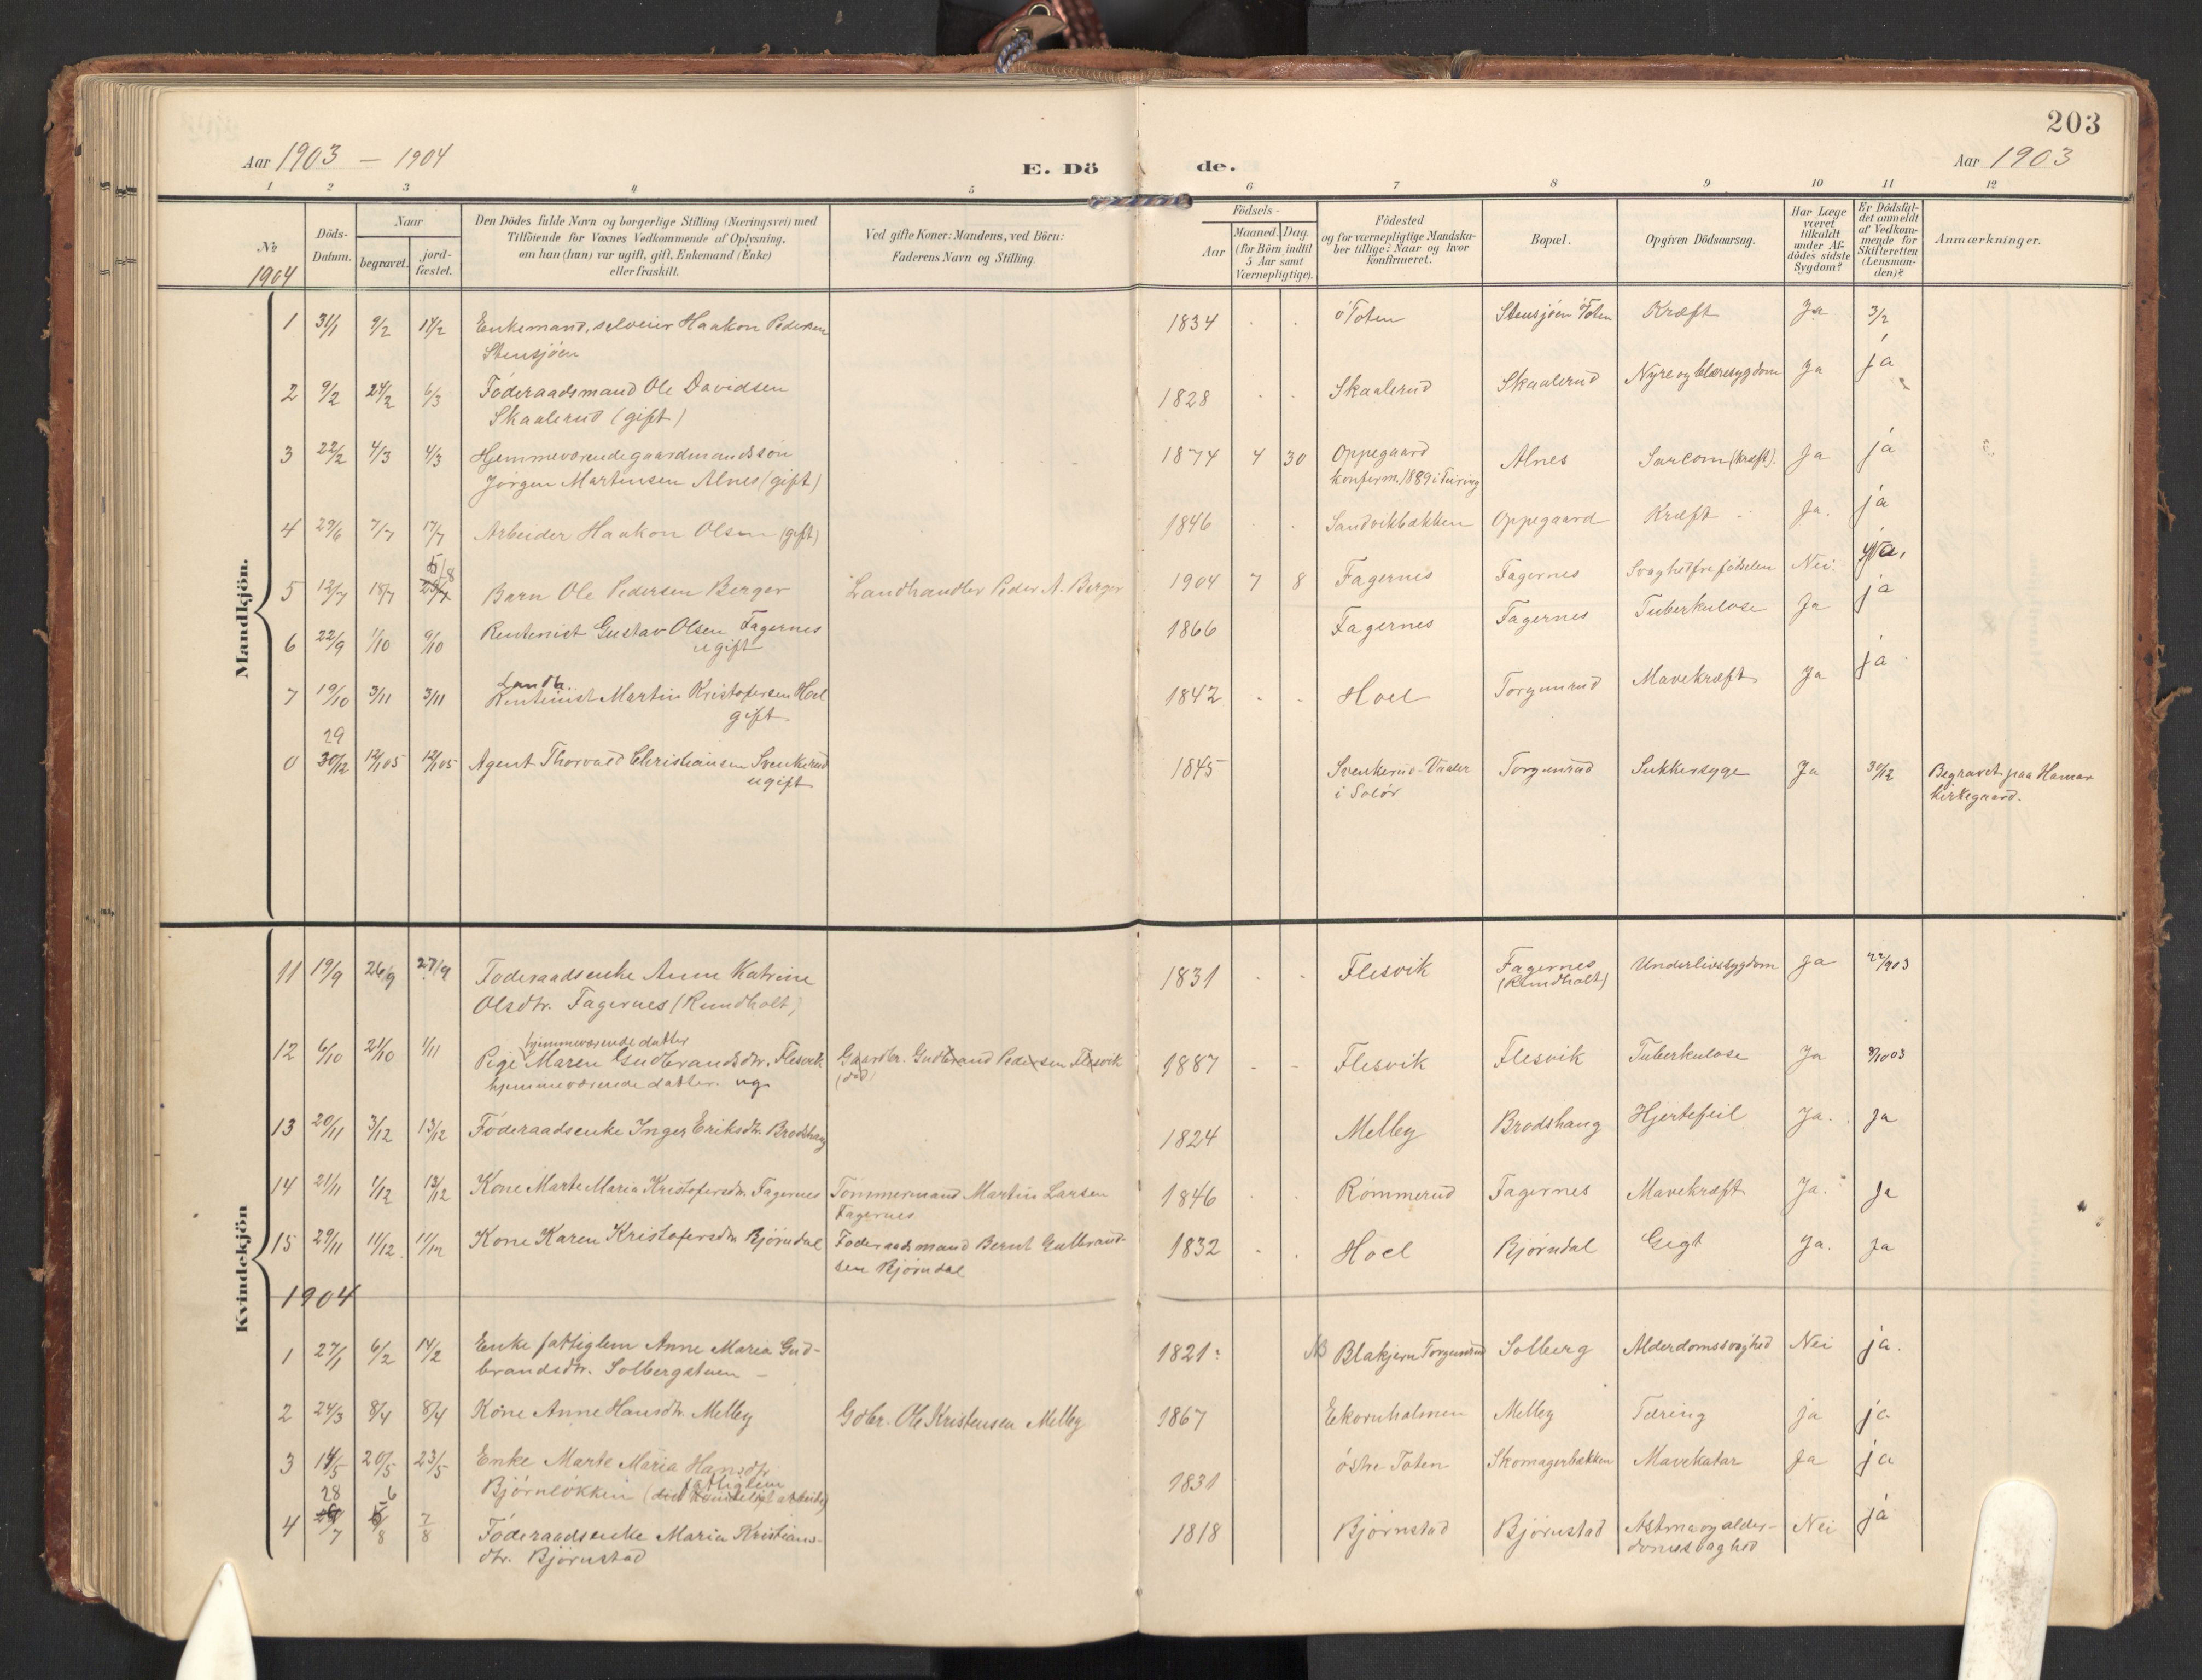 203
Aar 1903 — 1904
E. Dö
de.
Aar 1903
1 2 3 4 5 6 7 8 9 10 11 12
No
1904
Döds-
Datum.
Naar
begravet.
jord-
fæstet.
Den Dödes fulde Navn og borgerlige Stilling (Næringsvei) med
Tilföiende for Voxnes Vedkommende af Oplysning,
om han (hun) var ugift, gift, Enkemand (Enke)
eller fraskilt.
Ved gifte Koner: Mandens, ved Börn:
Faderens Navn og Stilling.
Födsels-
Aar
Maaned. Dag.
(for Börn indtil
5 Aar samt
Værnepligtige).
Födested
og for værnepligtige Mandska-
ber tillige: Naar og hvor
konfirmeret.
Bopæl.
Opgiven Dödsaarsag.
Har Læge
været
tilkaldt
under Af-
dödes sidste
Sygdom?
Er Dödsfal-
det anmeldt
af Vedkom-
mende for
Skifteretten
(Lensman-
den)?
Anmærkninger.
Mandkjön.
1 31/1 9/2 14/2 Enkemand, selveier Haakon Pedersen 1834 ö Toten Stensjöen ö Toten Kræft Ja 3/2
Stensjöen
2 9/2 24/2 6/3 Föderaadsmand Ole Davidsen 1828 Skaalerud Skaalerud Nyre og blæresygdom Ja ja
Skaalerud (gift)
3 22/2 4/3 4/3 Hjemmeværende gaardmandssön 1874 4 30 Oppegaard Alnes Sarcom (kræft). Ja ja
Jörgen Martinsen Alnes (gift) konferm. 1889 i Feiring
4 29/6 7/7 17/7 Arbeider Haakon Olsen (gift) 1846 Sandvikbækken Oppegaard Kræft - Ja. ja
5/8
5 12/7 18/7 Barn Ole Pedersen Berger Landhandler Peder A. Berger 1904 7 8 Fagernes Fagernes Svaghed fra födselen Nei.
6 22/9 1/10 9/10 Rentenist Gustav Olsen Fagernes 1866 Fagernes Fagernes Tuberkulose Ja ja
ugift
Landh.
7 19/10 3/11 3/11 Rentenist Martin Kristofersen Hoel 1842 Hoel Torgunrud Mavekræft Ja ja
gift
29
0 30/12 12/1 05 12/1 05 Agent Thorvald Christiansen Svenkerud 1845 Svenkerud - Vaaler Torgunrud Sukkersyge Ja 30/12 Begravet paa Hamar
ugift i Solör kirkegaard.
Kvindekjön
11 19/9 26/9 27/9 Föderaadsenke Anne Katrine 1831 Flesvik Fagernes Underlivssygdom Ja 22/9 03
Olsdtr. Fagernes (Rundholt) (Rundholt)
hjemmeværende datter
12 6/10 21/10 1/11 Pige Maren Gudbrandsdtr. Flesvik Gaardbr. Gudbrand Pedersen Flesvik 1887 Flesvik Flesvik Tuberkulose Ja 8/10 03
hjemmeværende datter. ug. (död)
13 20/11 3/12 13/12 Föderaadsenke Inger Eriksdtr. Brodshaug 1824 Melby Brodshaug Hjertefeil Ja. Ja
14 21/11 1/12 13/12 Kone Marte Maria Kristofersdtr. Fagernes Tömmermand Martin Larsen 1846 Römmerud Fagernes Mavekræft Ja. Ja
Fagernes
15 29/11 11/12 11/12 Kone Karen Kristofersdtr. Björndal Föderaadsmand Bernt Gulbrand- 1832 Hoel Björndal Gigt Ja. Ja
sen Björndal
1904
1 27/1 6/2 14/2 Enke fattiglem Anne Maria Gud- 1821: Blakjern Torgunrud Solberg Alderdomssvaghed Nei ja.
brandsdtr. Solbergstuen -
2 24/3 8/4 8/4 Kone Anne Hansdtr. Melby Gdbr. Ole Kristensen Melby 1867 Ekornholmen Melby Tæring ja ja
3 14/5 20/5 23/5 Enke Marte Maria Hansdtr. 1831 östre Toten Skomagerbækken Mavekatar Ja ja
fattiglem
Björnlökken
28 6
4 /7 /8 7/8 Föderaadsenke Maria Kristians- 1818 Björnstad Björnstad Astma og alder- Nei ja
dtr. Björnstad domssvaghed